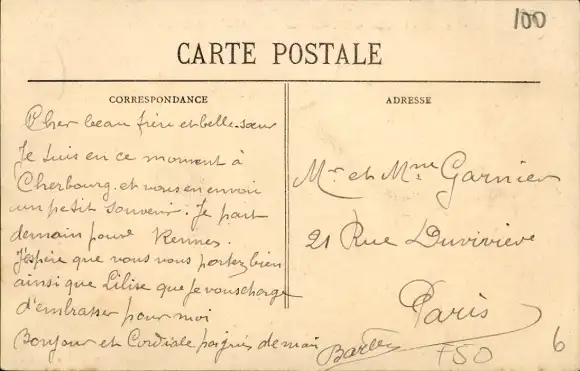 100
CARTE POSTALE
CORRESPONDANCE
Cher beau frère et belle-sœur
Je suis en ce moment à
Cherbourg. et vous en envoi
un petit souvenir. Je part
demain pour Rennes.
J'espère que vous vous portez bien
ainsi que Lilise que je vous charge
d'embrasser pour moi
Bonjour et Cordiale poignés de main
ADRESSE
Mr et Mme Garnier
21 Rue Duvivière
Paris
F50
6